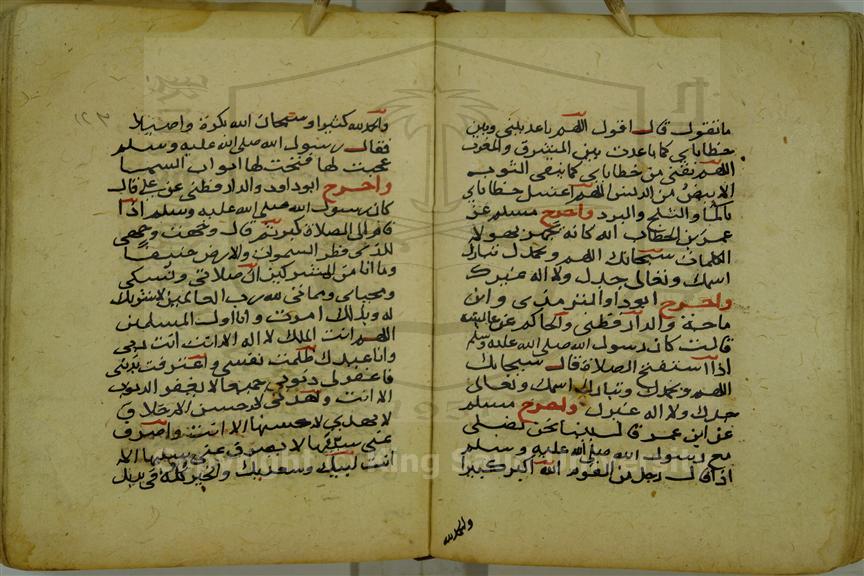 ما تقول قال اقول اللهم باعد بيني وبين
خطاياي كما باعدت بين المشرق والمغرب
اللهم نقني من خطاياي كما ينقى الثوب
الابيض من الدنس اللهم اغسل خطاياي
بالماء والثلج والبرد واخرج مسلم عن
عمر بن الخطاب انه كان يجهر بهولاء
الكلمات سبحانك اللهم وبحمدك تبارك
اسمك وتعالى جدك ولا اله غيرك
واخرج ابو داود والترمذي وابن
ماجة والدارقطني والحاكم عن عائشة
قالت كان رسول الله صلى الله عليه وسلم
اذا استفتح الصلاة قال سبحانك
اللهم وبحمدك وتبارك اسمك وتعالى
جدك ولا اله غيرك واخرج مسلم
عن ابن عمر قال بينما نحن نصلي
مع رسول الله صلى الله عليه وسلم
اذ قال رجل من القوم الله اكبر كبيرا
والحمد لله
والحمد لله كثيرا وسبحان الله بكرة واصيلا
فقال رسول الله صلى الله عليه وسلم
عجبت لها فتحت لها ابواب السما
واخرج ابو داود والدارقطني عن علي قال
كان رسول الله صلى الله عليه وسلم اذا
قام الى الصلاة كبر ثم قال وجهت وجهي
للذي فطر السموات والارض حنيفا
وما انا من المشركين ان صلاتي ونسكي
ومحياي ومماتي لله رب العالمين لا شريك
له وبذلك امرت وانا اول المسلمين
اللهم انت الملك لا اله الا انت انت ربي
وانا عبدك ظلمت نفسي واعترفت بذنبي
فاغفر لي ذنوبي جميعا لا يغفر الذنوب
الا انت واهدني لاحسن الاخلاق
لا يهدي لاحسنها الا انت واصرف
عني سيئها لا يصرف عني سيئها الا
انت لبيك وسعديك والخير كله في يديك